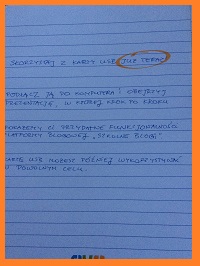 SKORZYSTAJ Z KARTY USB JUŻ TERAZ
PODŁĄCZ JĄ DO KOMPUTERA I OBEJRZYJ
PREZENTACJĘ, W KTÓREJ KROK PO KROKU
POKAŻEMY CI PRZYDATNE FUNKCJONALNOŚCI
PLATFORMY BLOGOWEJ „SZKOLNE BLOGI”.
KARTĘ USB MOŻESZ PÓŹNIEJ WYKORZYSTYWAĆ
W DOWOLNYM CELU.